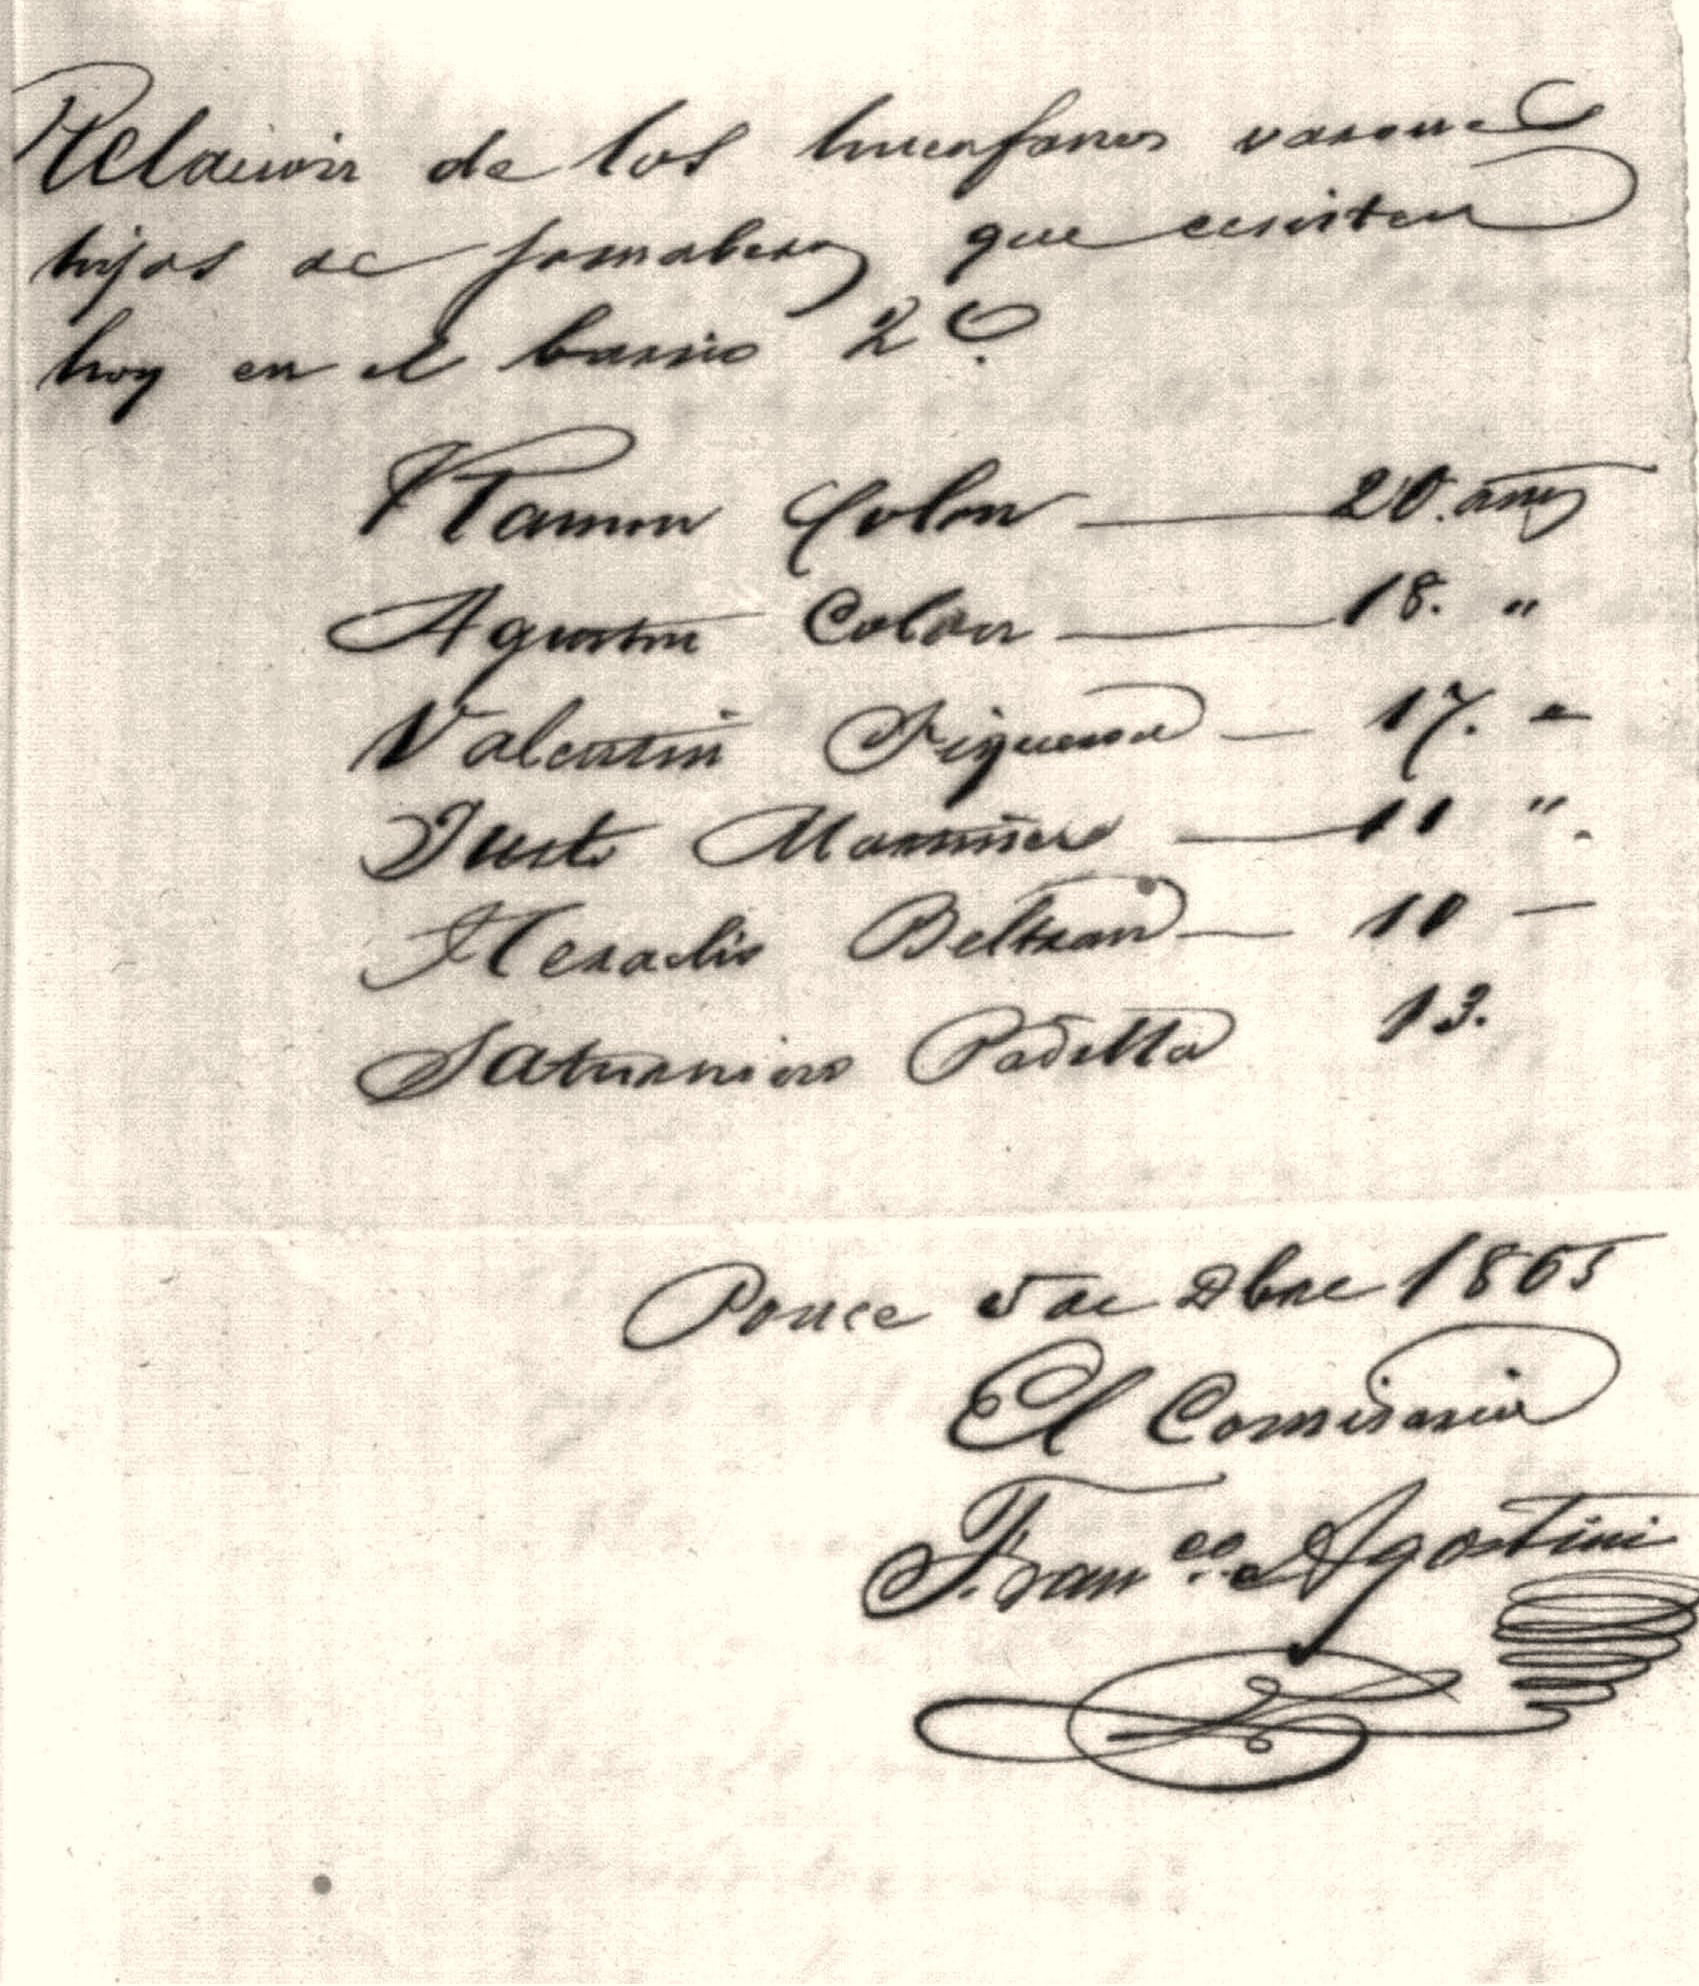 Relacion de los huerfanos varones
hijos de jornaleros que ecsisten
hoy en el barrio 2º
Ramon Colon — 20. años
Agustin Colon — 18. "
Valentin Figueroa — 17. "
Justo Martinez — 11 "
Heraclio Beltran — 10 —
Saturnino Padilla 13.
Ponce 5 de Dbre 1865
El Comisario
Franco. Agostini